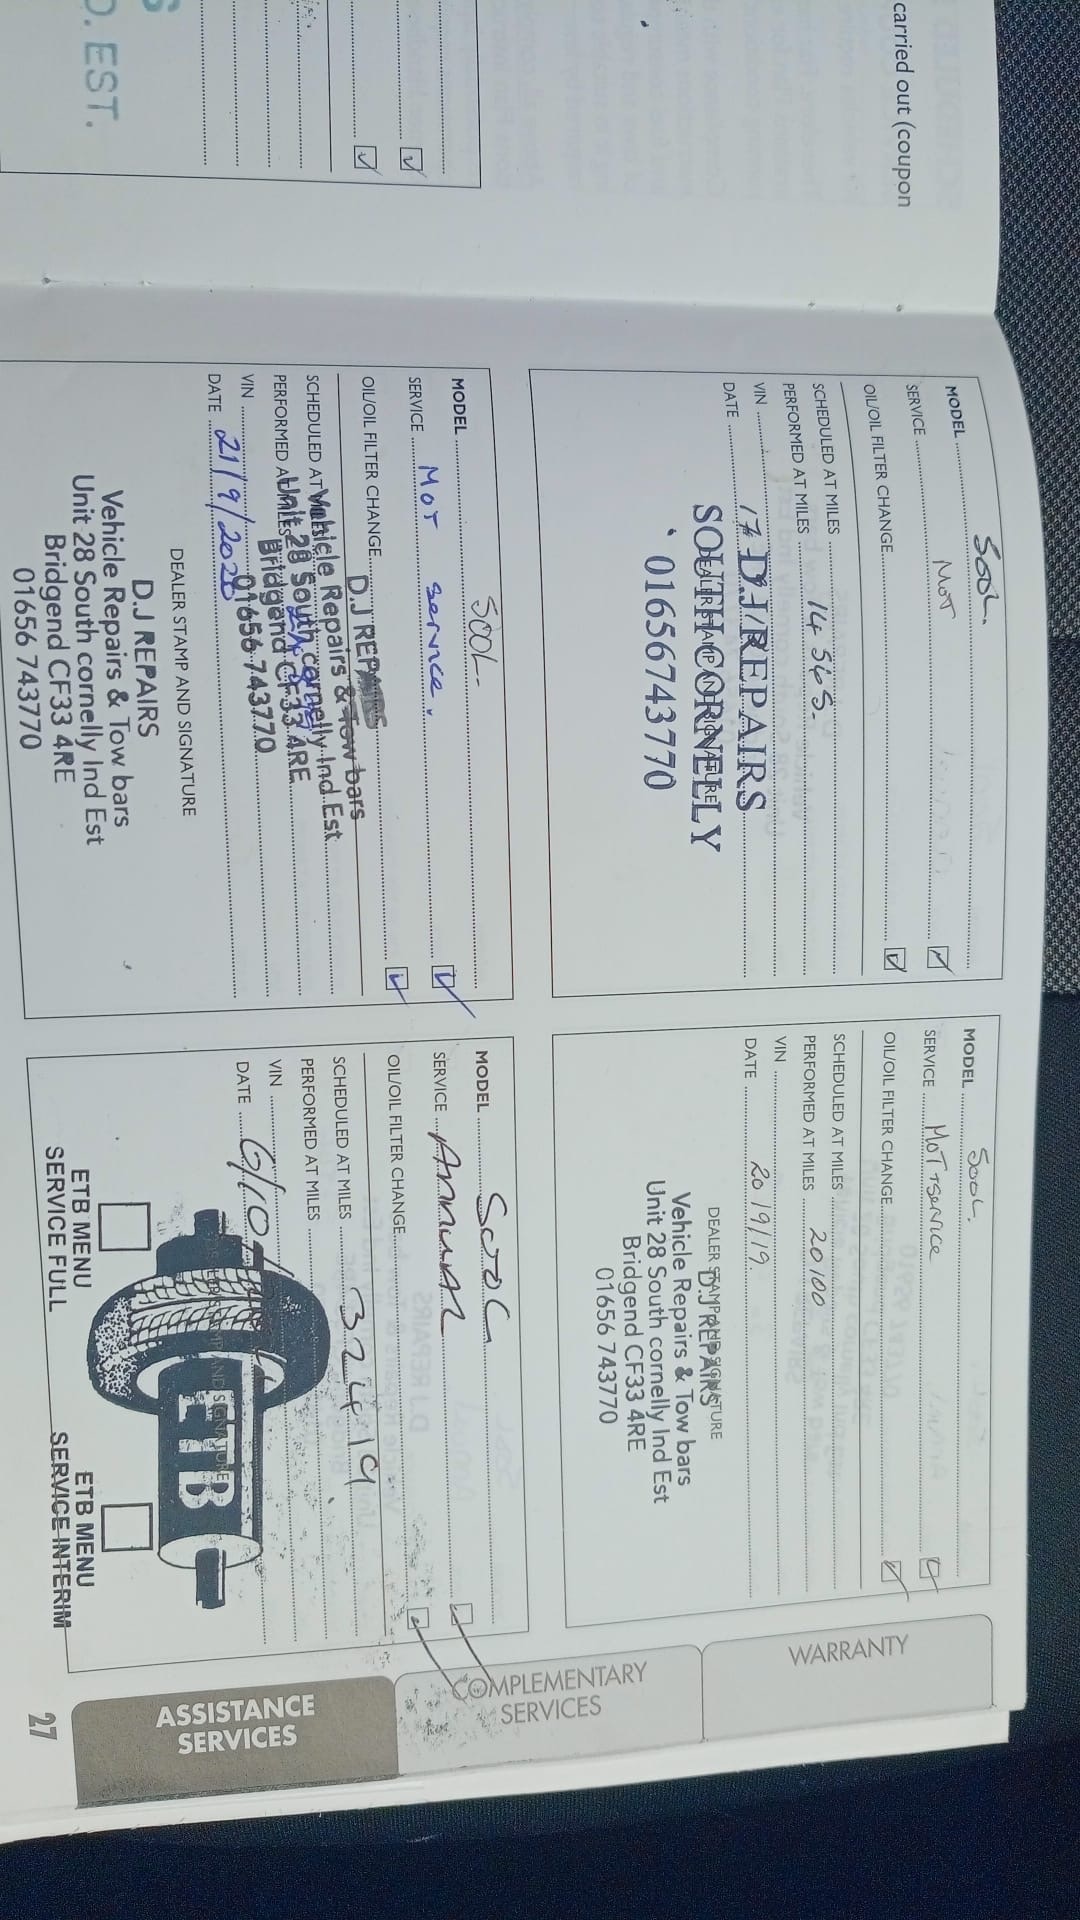 carried out (coupon
D. EST.
MODEL 500L.
SERVICE MOT
OIL/OIL FILTER CHANGE
SCHEDULED AT MILES
PERFORMED AT MILES 14545.
VIN
DATE 17
D.J REPAIRS
DEALER STAMP AND SIGNATURE
SOUTH CORNELLY
01656743770
MODEL 500L.
SERVICE MOT + SERVICE
OIL/OIL FILTER CHANGE
SCHEDULED AT MILES
PERFORMED AT MILES 20100
VIN
DATE 20/9/19.
DEALER STAMP AND SIGNATURE
D.J REPAIRS
Vehicle Repairs & Tow bars
Unit 28 South cornelly Ind Est
Bridgend CF33 4RE
01656 743770
MODEL 500L-
SERVICE MOT Service.
OIL/OIL FILTER CHANGE
D.J REPAIRS
SCHEDULED AT MILES
Vehicle Repairs & Tow bars
PERFORMED AT MILES
Unit 28 South cornelly Ind Est
Bridgend CF33 4RE
VIN
01656 743770
DATE 21/9/2020
DEALER STAMP AND SIGNATURE
D.J REPAIRS
Vehicle Repairs & Tow bars
Unit 28 South cornelly Ind Est
Bridgend CF33 4RE
01656 743770
MODEL 500L
SERVICE ANNUAL
OIL/OIL FILTER CHANGE
SCHEDULED AT MILES 32419
PERFORMED AT MILES
VIN
DATE 6/10/
DEALER STAMP AND SIGNATURE
ETB
ETB MENU
SERVICE FULL
ETB MENU
SERVICE INTERIM
WARRANTY
COMPLEMENTARY
SERVICES
ASSISTANCE
SERVICES
27